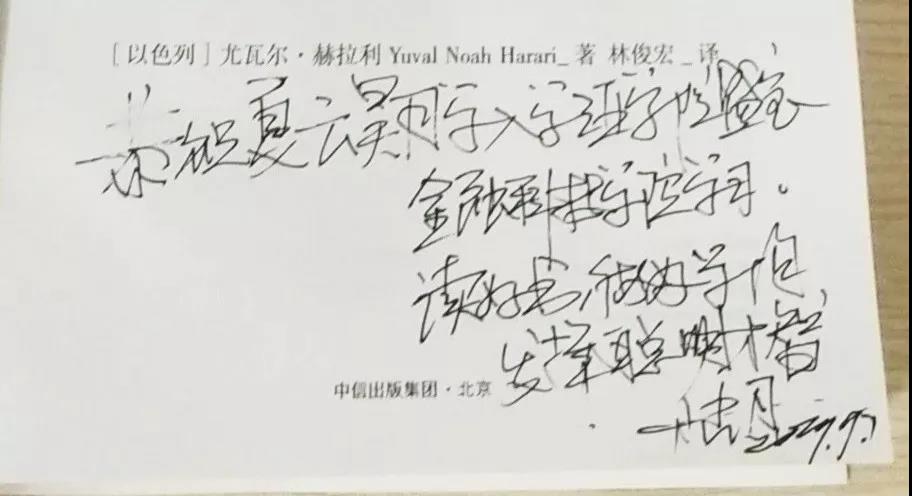 [以色列] 尤瓦尔·赫拉利 Yuval Noah Harari_著 林俊宏_译
恭祝夏云昊同学入学
金融科技学院学习。
读好书,做好学问
发挥聪明才智
中信出版集团·北京